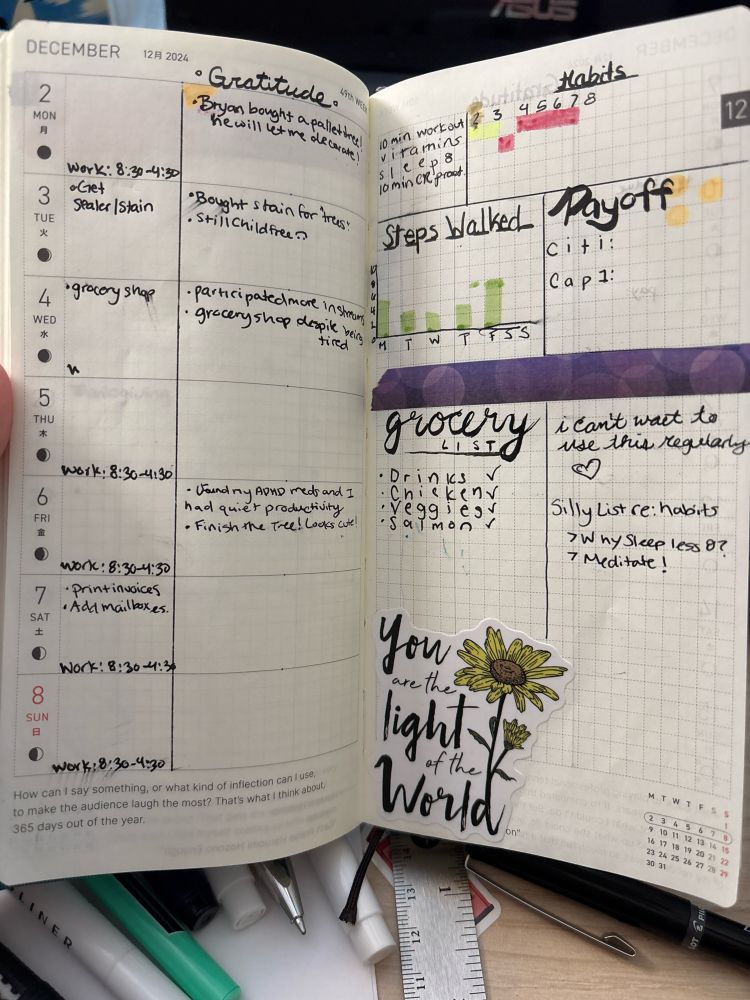 ASUS
DECEMBER 12月 2024
49TH WEEK
Gratitude
2
MON
月
Work: 8:30-4:30
• Bryan bought a pallet tree!
he will let me decorate!
3
TUE
火
• Get
Sealer/Stain
• Bought stain for trees!
• Still Childfree
4
WED
水
• grocery shop
• participated more in stream
• grocery shop despite being
tired
5
THU
木
Work: 8:30-4:30
6
FRI
金
Work: 8:30-4:30
• Found my ADHD meds and I
had quiet productivity
• Finish the Tree! Looks cute!
7
SAT
土
• Print invoices
• Add mailboxes.
Work: 8:30-4:30
8
SUN
日
Work: 8:30-4:30
How can I say something, or what kind of inflection can I use,
to make the audience laugh the most? That's what I think about,
365 days out of the year.
Habits
2 3 4 5 6 7 8
10 min. workout
vitamins
sleep 8
10 min
12
Steps Walked
M T W T F S S
Payoff
Citi:
Cap1:
grocery
LIST
• Drinks ✓
• Chicken ✓
• Veggies ✓
• Salmon ✓
i can't wait to
use this regularly
♡
Silly List re: habits
> Why Sleep less 8?
> Meditate!
You
are the
light
of the
World
M T W T F S S
1
2 3 4 5 6 7 8
9 10 11 12 13 14 15
16 17 18 19 20 21 22
23 24 25 26 27 28 29
30 31
LINER
13
12
11
1